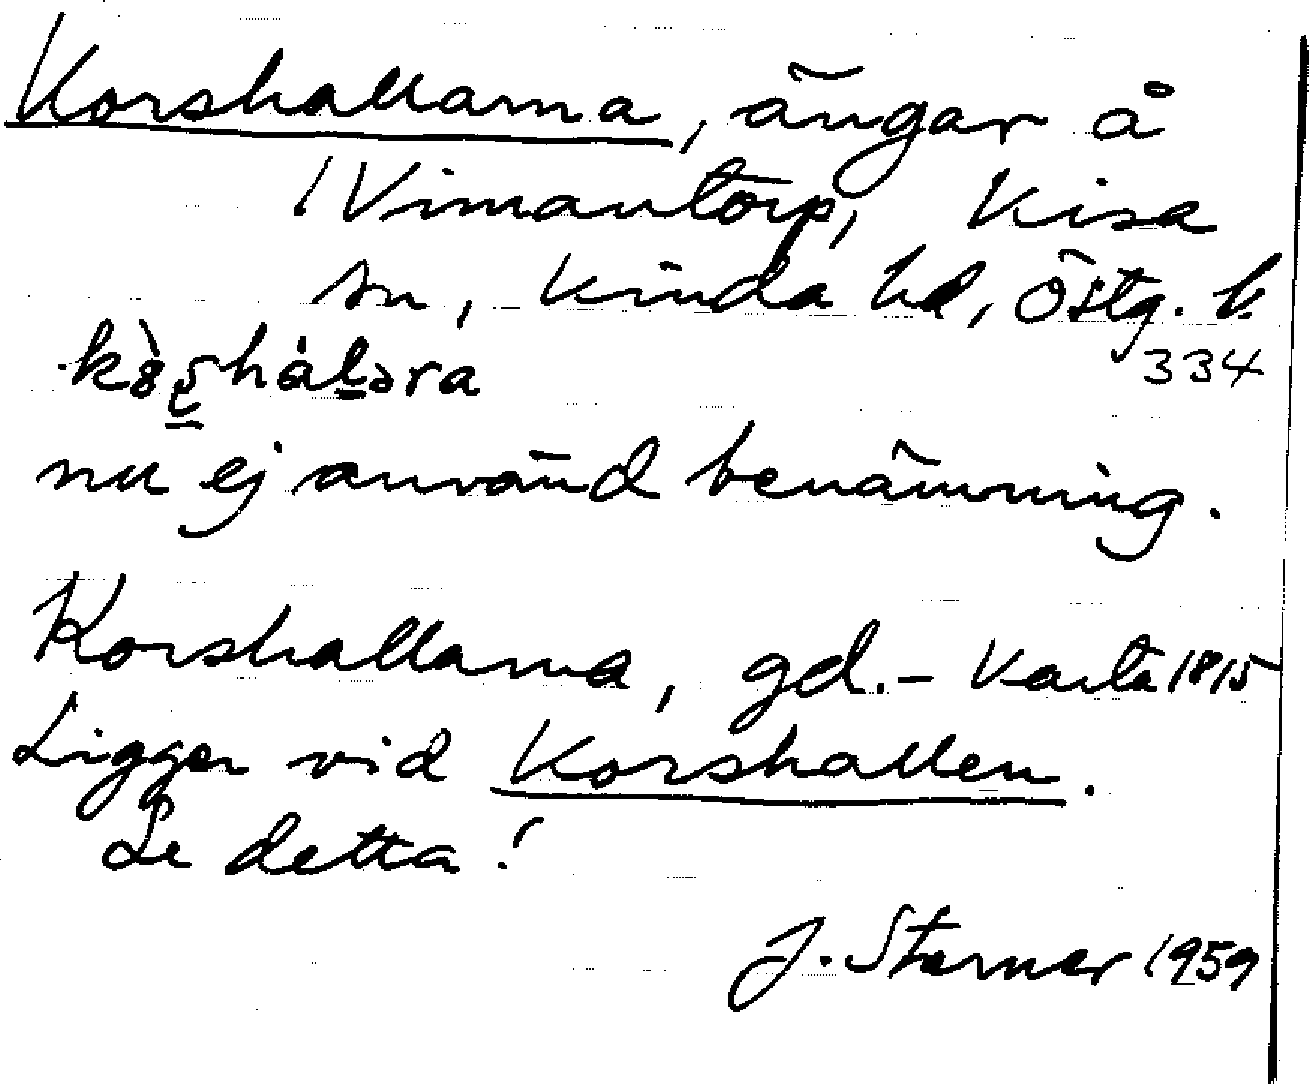 Korshallarna, ängar å
Vimantorp, Kisa
sn, Kinda hd, Östg. l.
334
nu ej använd benämning.
Korshallarna, gd. – Karta 1815
Ligger vid Korshallen.
Se detta!
J. Sterner 1959